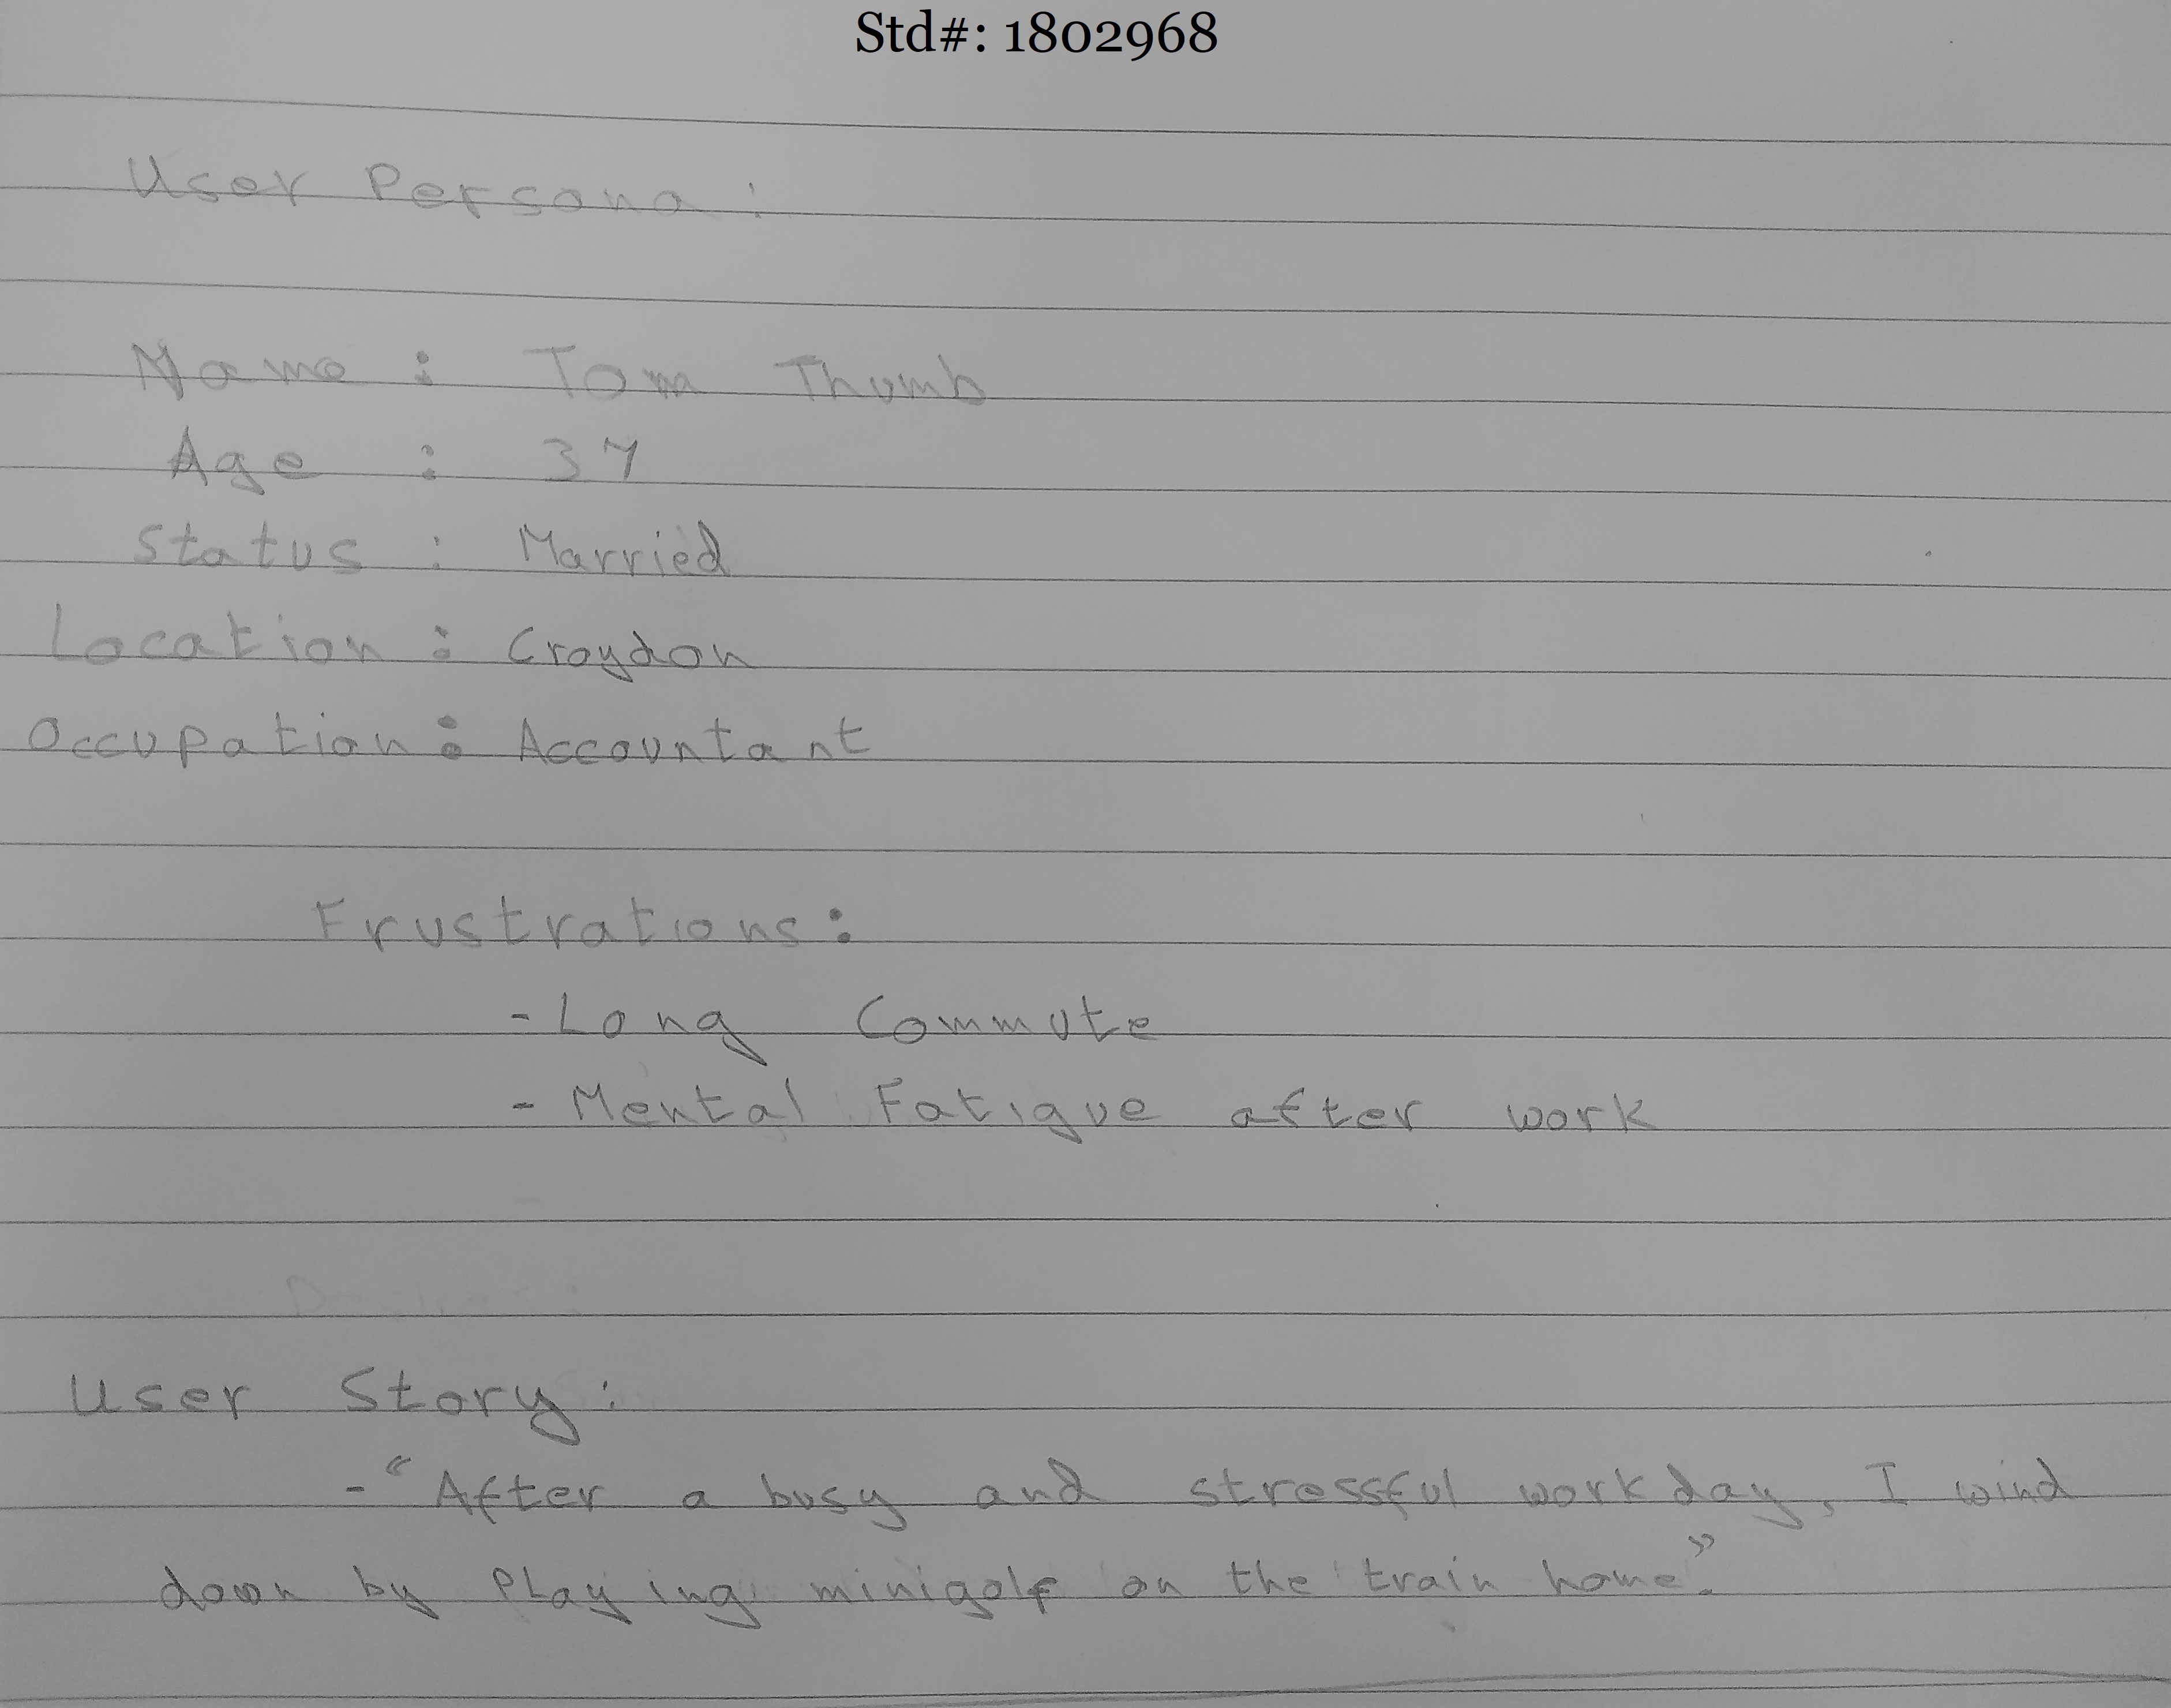 Std#: 1802968
User Persona:
Name : Tom Thumb
Age : 37
Status : Married
Location : Croydon
Occupation : Accountant
Frustrations:
- Long Commute
- Mental Fatigue after work
User Story:
- "After a busy and stressful workday, I wind
down by Playing minigolf on the train home."